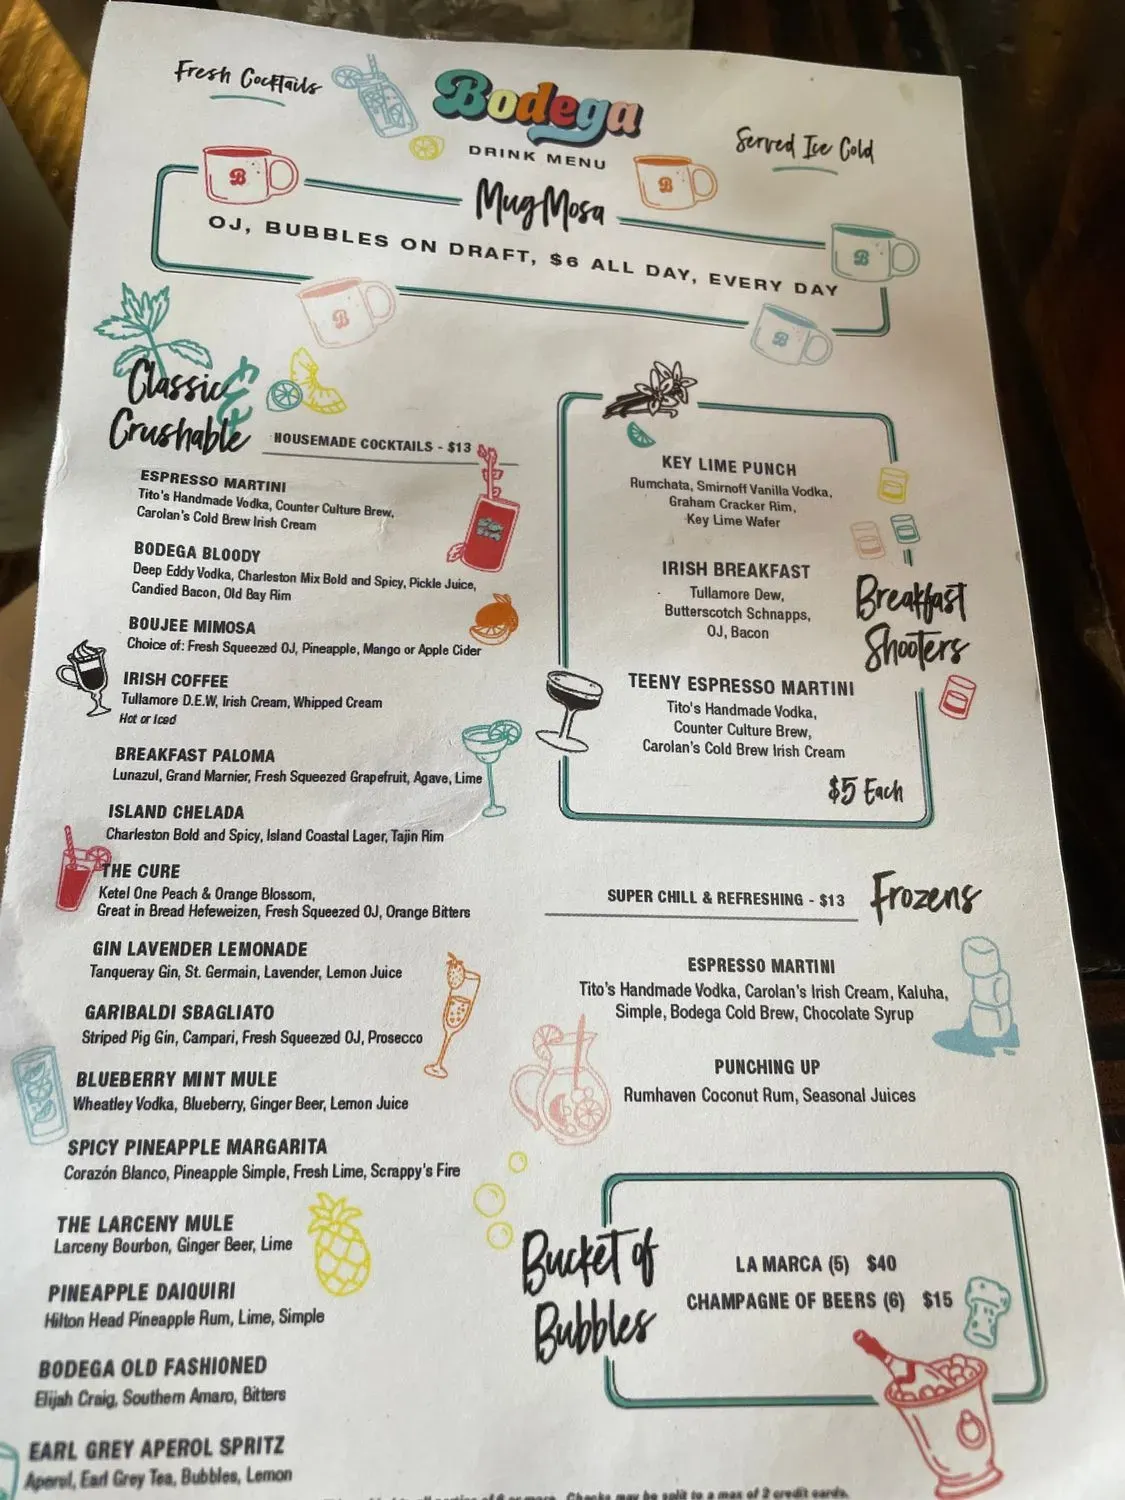 Fresh Cocktails
Bodega
DRINK MENU
Served Ice Cold
MugMosa
OJ, BUBBLES ON DRAFT, $6 ALL DAY, EVERY DAY
B
B
B
B
B
Classic &
Crushable
HOUSEMADE COCKTAILS - $13
ESPRESSO MARTINI
Tito's Handmade Vodka, Counter Culture Brew,
Carolan's Cold Brew Irish Cream
BODEGA BLOODY
Deep Eddy Vodka, Charleston Mix Bold and Spicy, Pickle Juice,
Candied Bacon, Old Bay Rim
BOUJEE MIMOSA
Choice of: Fresh Squeezed OJ, Pineapple, Mango or Apple Cider
IRISH COFFEE
Tullamore D.E.W, Irish Cream, Whipped Cream
Hot or Iced
BREAKFAST PALOMA
Lunazul, Grand Marnier, Fresh Squeezed Grapefruit, Agave, Lime
ISLAND CHELADA
Charleston Bold and Spicy, Island Coastal Lager, Tajin Rim
THE CURE
Ketel One Peach & Orange Blossom,
Great in Bread Hefeweizen, Fresh Squeezed OJ, Orange Bitters
GIN LAVENDER LEMONADE
Tanqueray Gin, St. Germain, Lavender, Lemon Juice
GARIBALDI SBAGLIATO
Striped Pig Gin, Campari, Fresh Squeezed OJ, Prosecco
BLUEBERRY MINT MULE
Wheatley Vodka, Blueberry, Ginger Beer, Lemon Juice
SPICY PINEAPPLE MARGARITA
Corazón Blanco, Pineapple Simple, Fresh Lime, Scrappy's Fire
THE LARCENY MULE
Larceny Bourbon, Ginger Beer, Lime
PINEAPPLE DAIQUIRI
Hilton Head Pineapple Rum, Lime, Simple
BODEGA OLD FASHIONED
Elijah Craig, Southern Amaro, Bitters
EARL GREY APEROL SPRITZ
Aperol, Earl Grey Tea, Bubbles, Lemon
KEY LIME PUNCH
Rumchata, Smirnoff Vanilla Vodka,
Graham Cracker Rim,
Key Lime Wafer
IRISH BREAKFAST
Tullamore Dew,
Butterscotch Schnapps,
OJ, Bacon
Breakfast
Shooters
TEENY ESPRESSO MARTINI
Tito's Handmade Vodka,
Counter Culture Brew,
Carolan's Cold Brew Irish Cream
$5 Each
SUPER CHILL & REFRESHING - $13
Frozens
ESPRESSO MARTINI
Tito's Handmade Vodka, Carolan's Irish Cream, Kaluha,
Simple, Bodega Cold Brew, Chocolate Syrup
PUNCHING UP
Rumhaven Coconut Rum, Seasonal Juices
Bucket of
Bubbles
LA MARCA (5) $40
CHAMPAGNE OF BEERS (6) $15
of 6 or more. Checks may be split to a max of 2 credit cards.